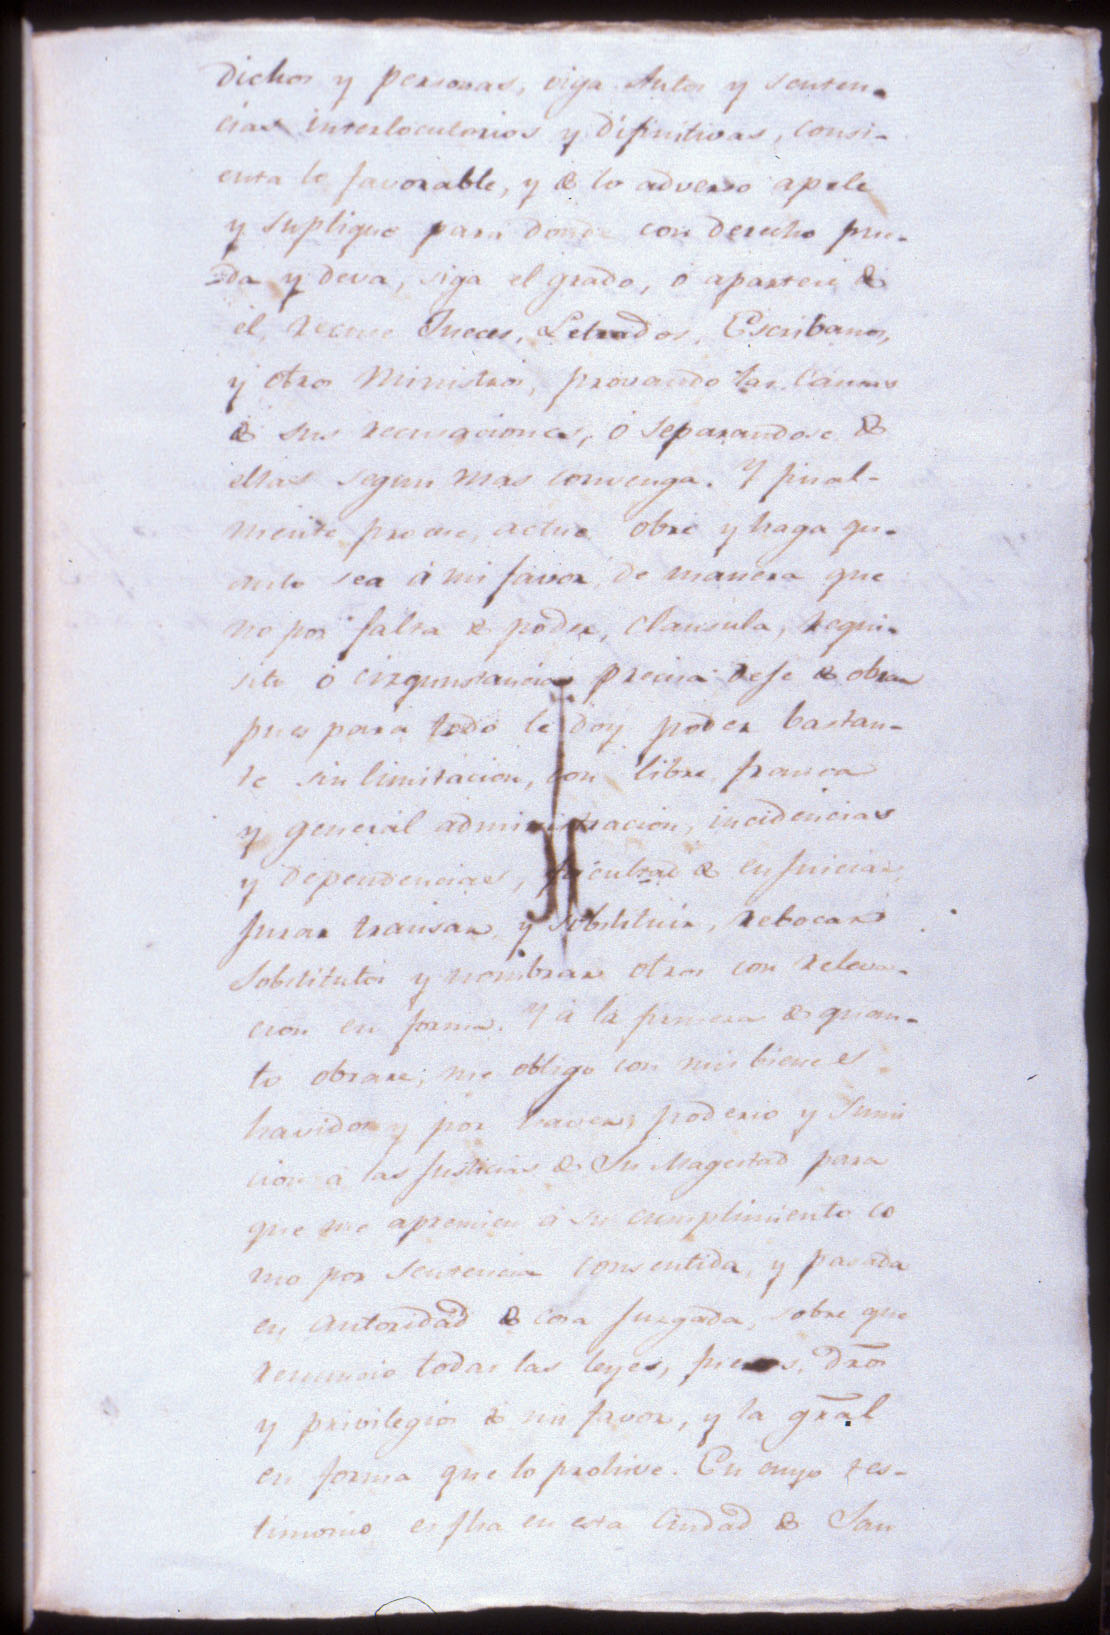 dichos y personas, oiga Autos y senten-
cias interlocutorios y difinitivas, consi-
enta lo favorable, y de lo adverso apele
y suplique para donde con derecho pue-
da y deva, siga el grado, ó aparteze de
él, recuse Jueces, Letrados, Escribanos,
y otros Ministros, provando las causas
de sus recusaciones, ó separandose de
ellas segun mas convenga. Y final-
mente procure, actue obre y haga qu-
anto sea á mi favor de manera que
no por falta de poder, clausula, requi-
sito ó circunstancia precisa dese de obrar
pues para todo le doy poder bastan-
te sin limitacion, con libre franca
y general administracion, incidencias
y dependencias, facultad de enjuiciar
jurar transar y sobstituir, rebocar
Sobstitutos y nombrar otros con releva-
cion en forma. Y á la firmeza de quan-
to obrare, me obligo con mis bienes
havidos y por haver, poderio y sumi
cion á las Justicias de Su Magestad para
que me apremien á su cumplimiento co
mo por sentencia consentida, y pasada
en autoridad de cosa Juzgada, sobre que
renuncio todas las leyes, fueros, dros
y privilegios de mi favor, y la gral
en forma que lo prohive. En cuyo tes-
timonio es fha en esta Ciudad de San